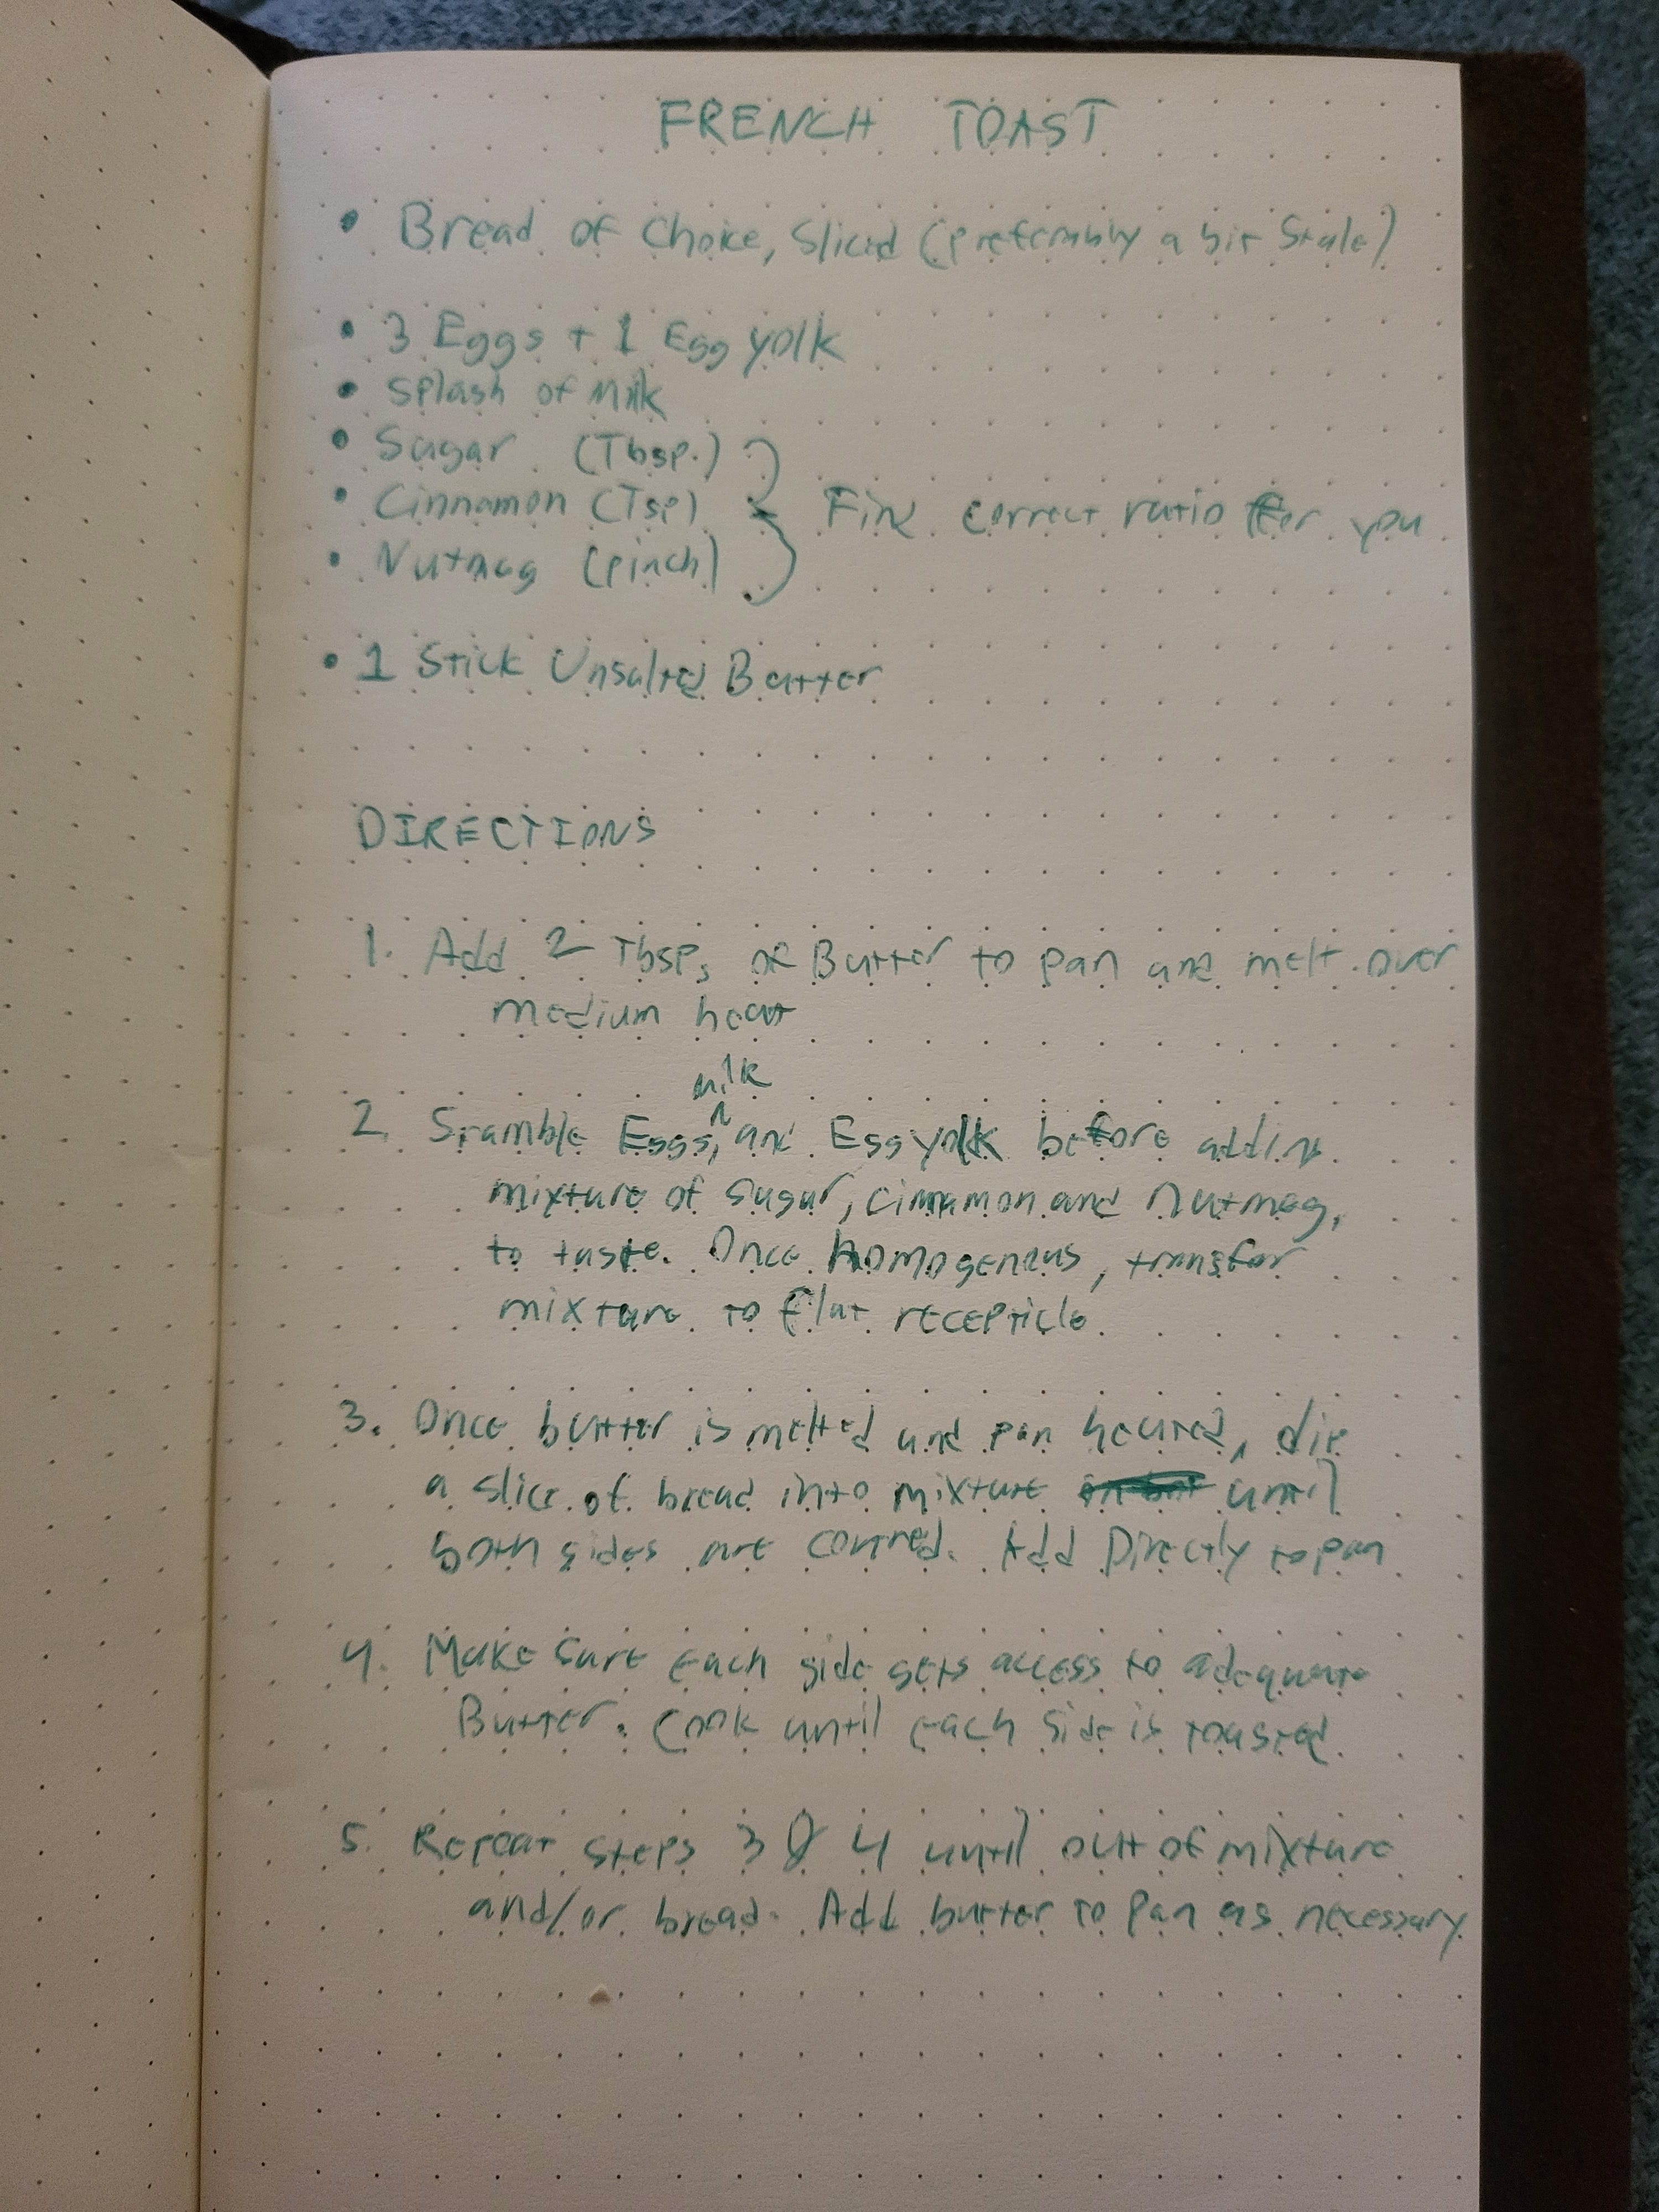 FRENCH TOAST
• Bread of Choice, Sliced (preferably a bit Stale)
• 3 Eggs + 1 Egg yolk
• Splash of Milk
• Sugar (Tbsp.)
• Cinnamon (Tsp) } Find correct ratio for you
• Nutmeg (pinch)
• 1 Stick Unsalted Butter
DIRECTIONS
1. Add 2 Tbsps of Butter to pan and melt over
medium heat
milk
2. Sramble Eggs, ^ and Egg yolk before adding
mixture of sugar, cinnamon and Nutmeg,
to taste. Once homogenous, transfer
mixture to flat recepticle.
3. Once butter is melted and pan heated, dip
a slice of bread into mixture until
both sides are covered. Add Directly to pan
4. Make sure each side gets access to adequate
Butter. Cook until each side is toasted.
5. Repeat steps 3 & 4 until out of mixture
and/or bread. Add butter to pan as necessary.